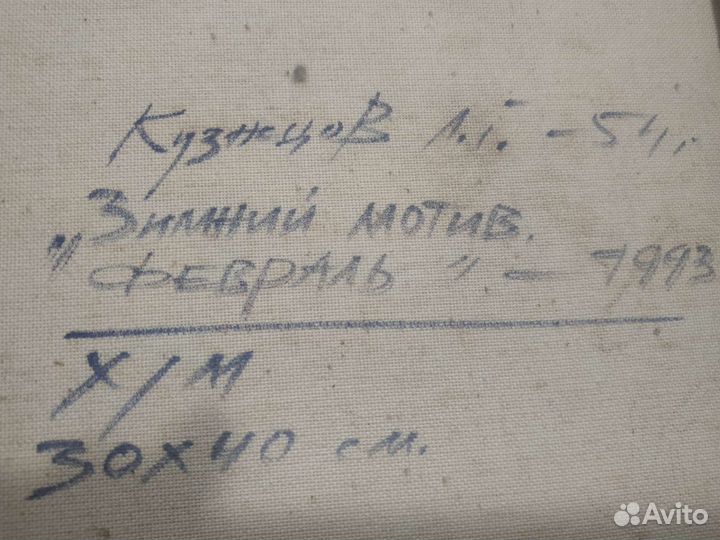 Кузнецов Л.Г. - 54г.
"Зимний мотив.
Февраль" - 1993
Х/М
30х40 см.
Avito